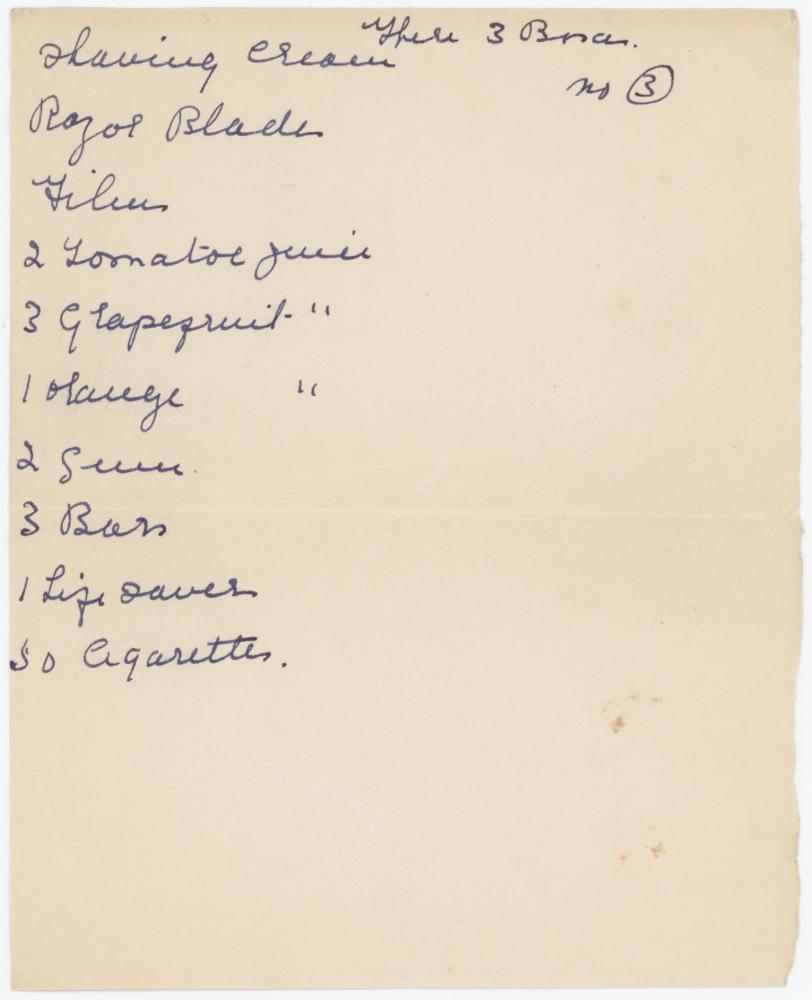 There 3 Boxes.
no 3
Shaving Cream
Razor Blades
Films
2 Tomatoe juice
3 Grapefruit "
1 orange "
2 Gum.
3 Bars
1 Life saver
50 Cigarettes.